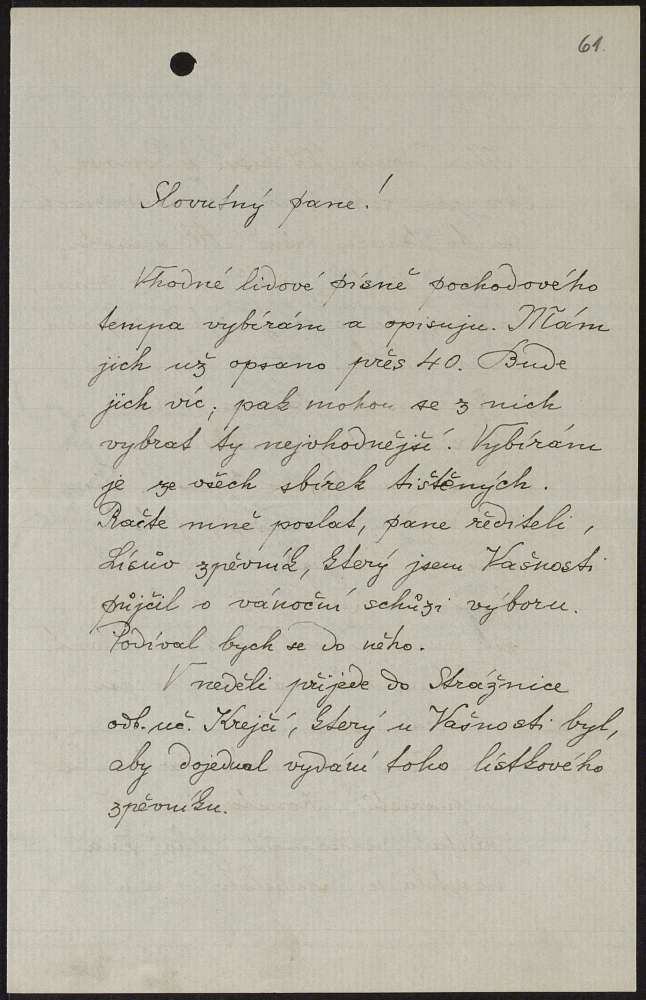 61.
Slovutný pane!
Vhodné lidové písně pochodového
tempa vybírám a opisuju. Mám
jich už opsano přes 40. Bude
jich víc; pak mohou se z nich
vybrat ty nejvhodnější. Vybírám
je ze všech sbírek tištěných.
Račte mně poslat, pane řediteli,
Lísův zpěvník, který jsem Vašnosti
půjčil o vánoční schůzi výboru.
Podíval bych se do něho.
V neděli přijede do Strážnice
odb. uč. Krejčí, který u Vašnosti byl,
aby dojednal vydání toho lístkového
zpěvníku.